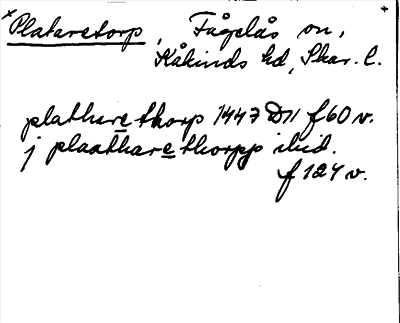 × Plataretorp, Fågelås sn,
Kåkinds hd, Skar. l.
plathare thorp 1447 D11 f 60 v.
j plaathare thorpp ibid.
f 124 v.